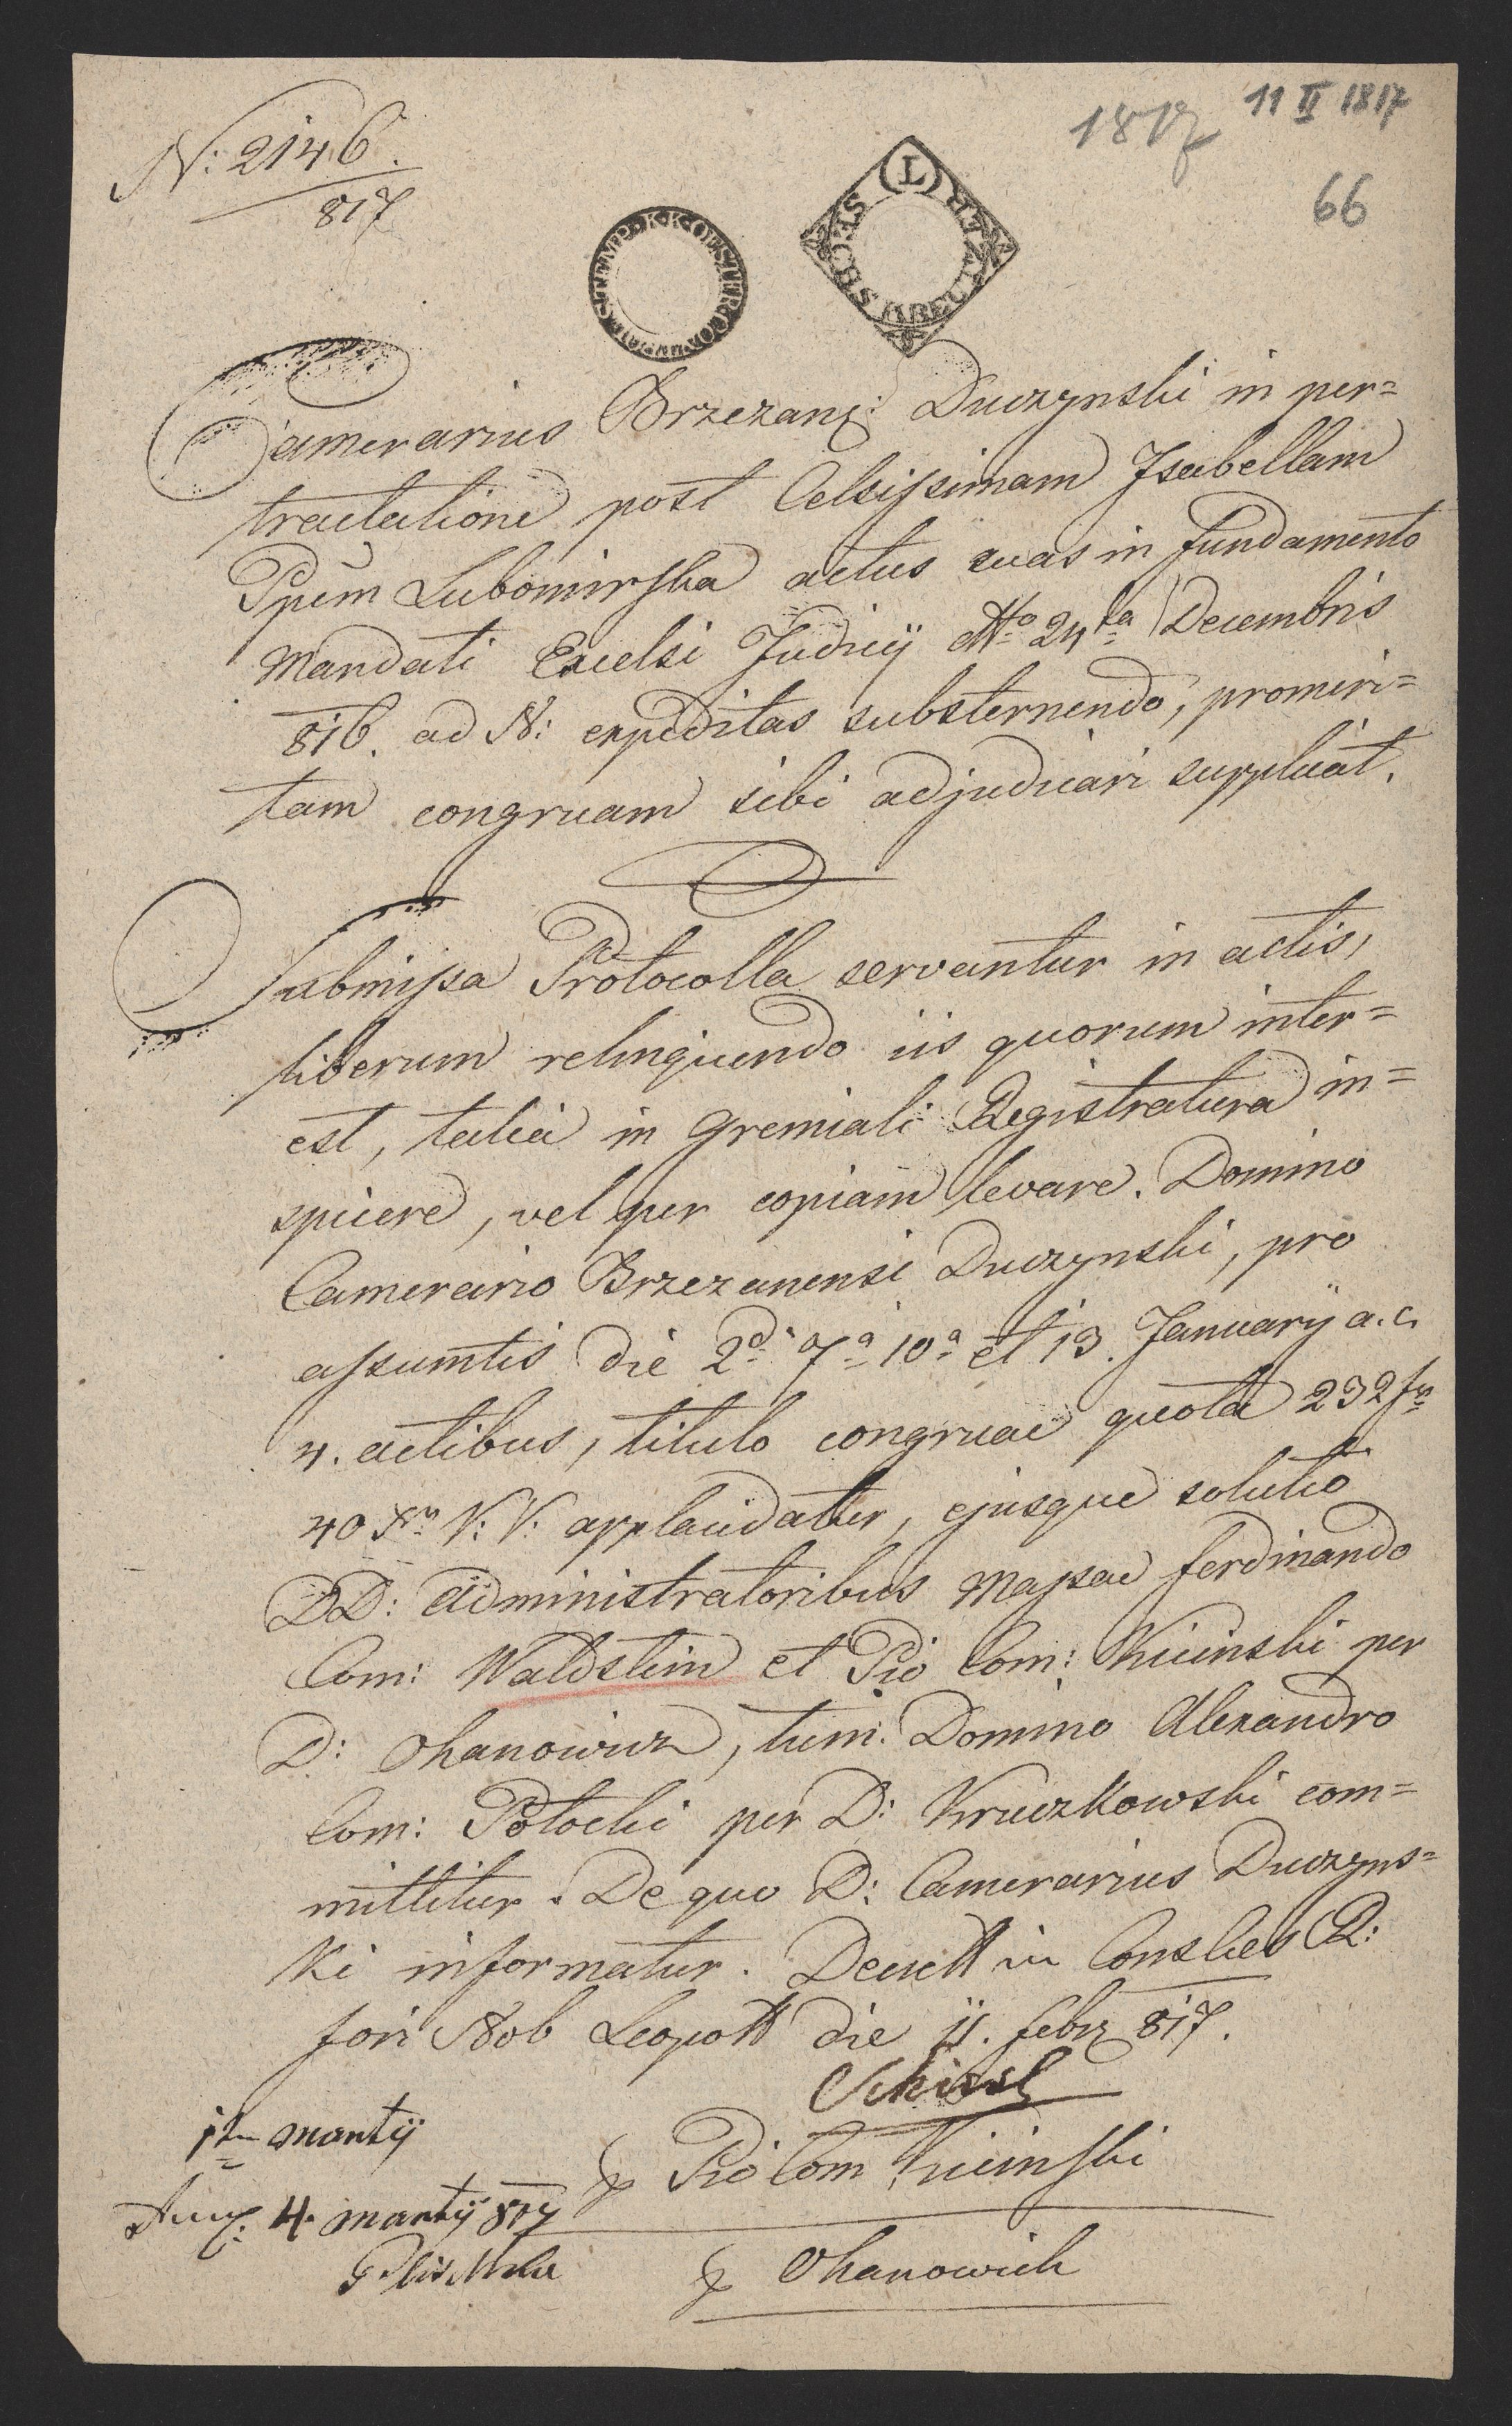 N: 2146.
817
1817
11 II 1817
66
K.K. OESTER
SECHS KREUTZER
Camerarius Brzezan: Duczynski in per=
tractatione post Celsissimam Isabellam
Ppem Lubomirska actus suas in fundamento
Mandati Excelsi Judicij dtto 24ta Decembris
816. ad N: expeditas substernendo, promeri=
tam congruam sibi adjudicari supplicat.
Submissa Protocolla servantur in actis,
liberum relinquendo iis quorum inter=
est, talia in gremiali Registratura in=
spicere, vel per copiam levare. Domino
Camerario Brzezanensi Duczynski, pro
assumtis die 2da 7a 10a et 13. Januarij a.c.
4. actibus, titulo congruae quota 232 fr
40 Xr V: V: applacidatur, ejusque solutio
DD: Administratoribus Massae ferdinando
Com: Waldstein et Pio Com: Kicinski per
D: Ohanowicz, tum Domino Alexandro
Com: Potocki per D: Kruczkowski com=
mittitur. De quo D: Camerarius Duczyns=
ki informatur. Decrett in Consb C.R:
fori Nob Leopott die 11. febr 817.
Pio Com Kicinski
1ma martij
4. martij 817
Ohanowich